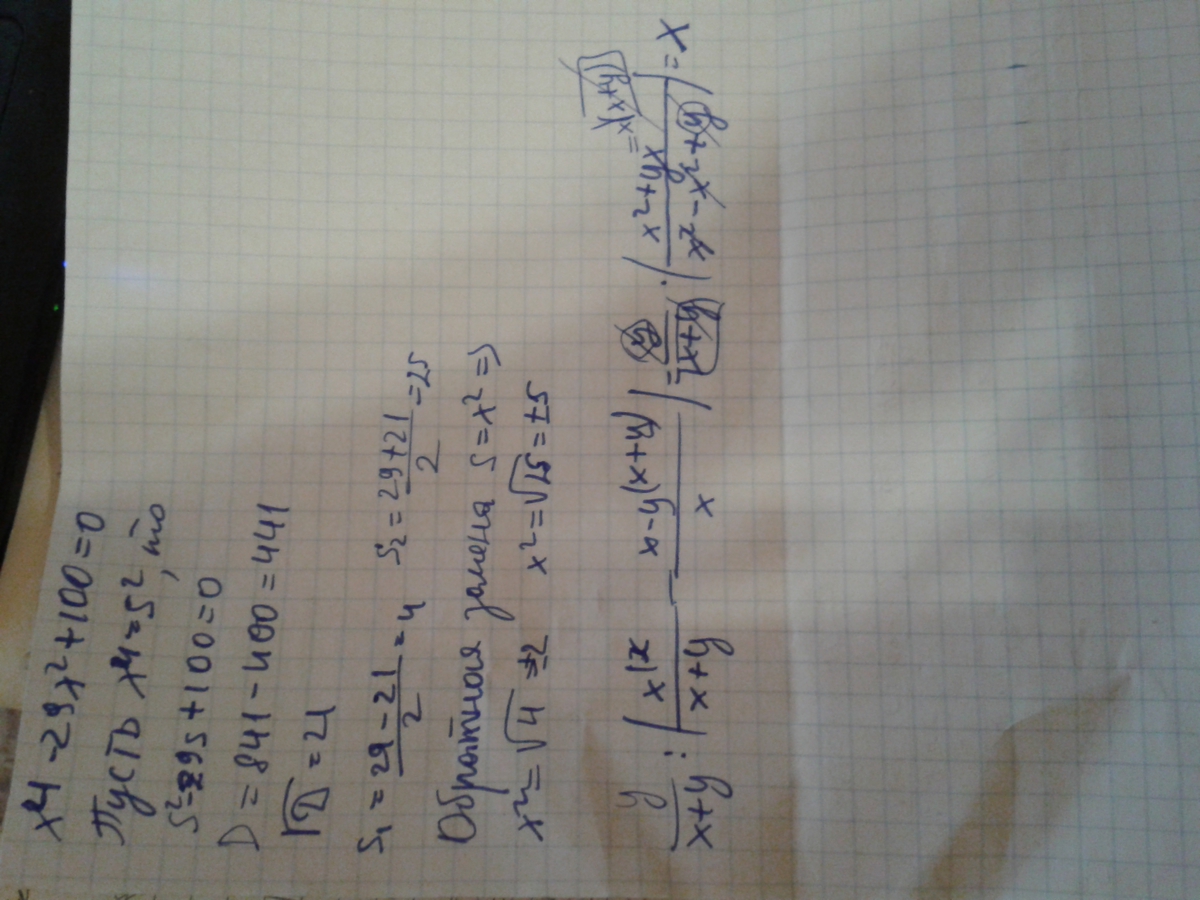 x⁴-29x²+100=0
Пусть x⁴=s², то
s²-29s+100=0
D=841-400=441
√D=21
s₁=(29-21)/2=4 s₂=(29+21)/2=25
Обратная замена s=x²=>
x²=√4=±2 x²=√25=±5
y/(x+y) : (x\x/(x+y) - x-y(x+y)/x) = y/(x+y) · (x²+yx =x(x+y)/x²-x²+y) =x